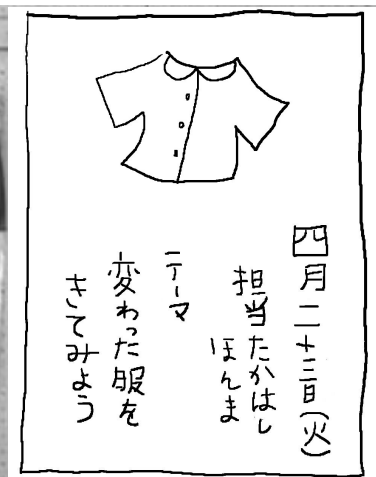 四月二十三日(火)
担当たかはし
ほんま
テーマ
変わった服を
きてみよう